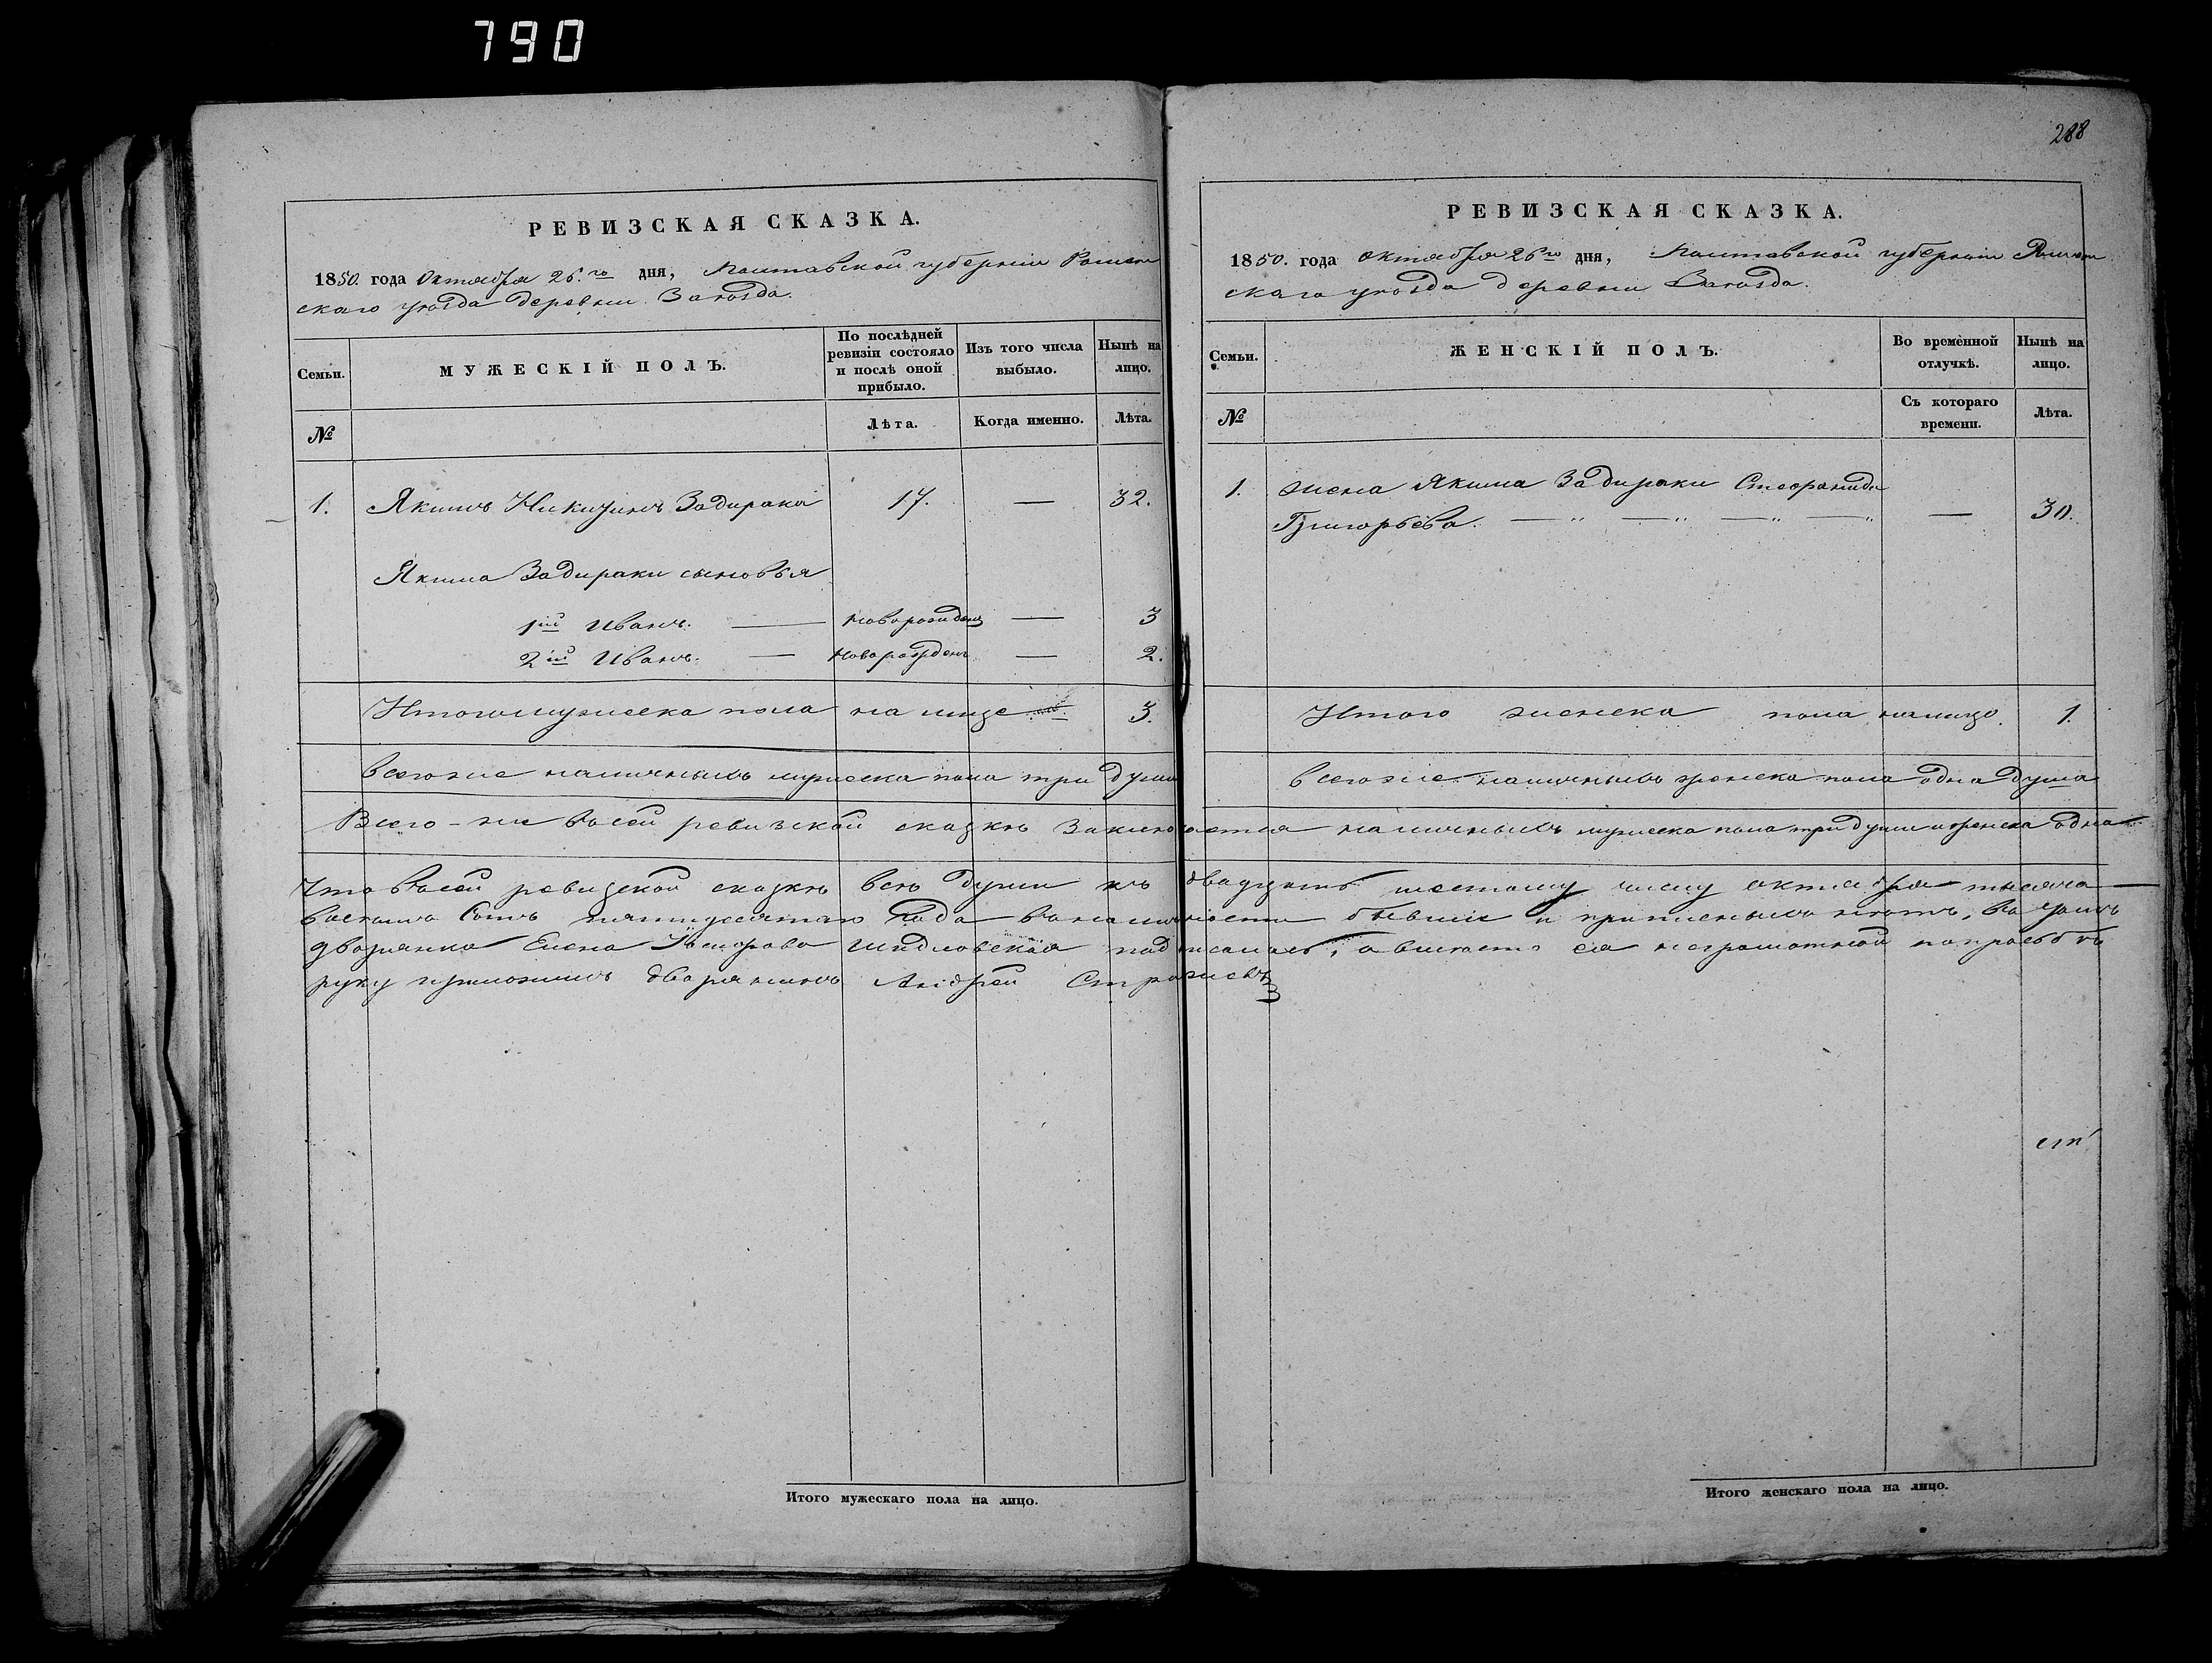 790
288
РЕВИЗСКАЯ СКАЗКА.
1850. года Октября 26.го дня, Полтавской губерніи Ромен
скаго уѣзда деревни
Семьи.
МУЖЕСКІЙ ПОЛЪ.
По послѣдней ревизіи состояло и послѣ оной прибыло.
Изъ того числа выбыло.
Нынѣ на лицо.
№
Лѣта.
Когда именно.
Лѣта.
1. Якимъ Никитинъ Задирака 17. — 32.
Якима Задираки сыновья
1й Иванъ. — новорожденъ — 3
2й Иванъ. — новорожденъ — 2.
Итого мужеска пола на лице 3.
Всегоже наличныхъ мужеска пола три души
РЕВИЗСКАЯ СКАЗКА.
1850. года октября 26го дня, Полтавской губерніи Ромен
скаго уѣзда деревни
Семьи.
ЖЕНСКІЙ ПОЛЪ.
Во временной отлучкѣ.
Нынѣ на лицо.
№
Съ котораго времени.
Лѣта.
1. жена Якима Задираки Стефанида
Григорьева. — 30.
Итого женска пола налицо. 1.
всегоже наличныхъ женска пола одна душа
Всего-же всей ревизской сказкѣ заключается наличныхъ мужеска пола три души и женска одна
Что всей ревизской сказкѣ всѣ души къ двадцать шестому числу октября тысяча
восемь сотъ пятидесятаго года въ наличности бывшіе и прописныхъ нѣтъ, въ томъ
дворянка Елена Шидловская подписалась, а вместо ея неграмотной по просьбѣ
руку приложилъ дворянинъ Андрей
Итого мужескаго пола на лицо.
Итого женскаго пола на лицо.